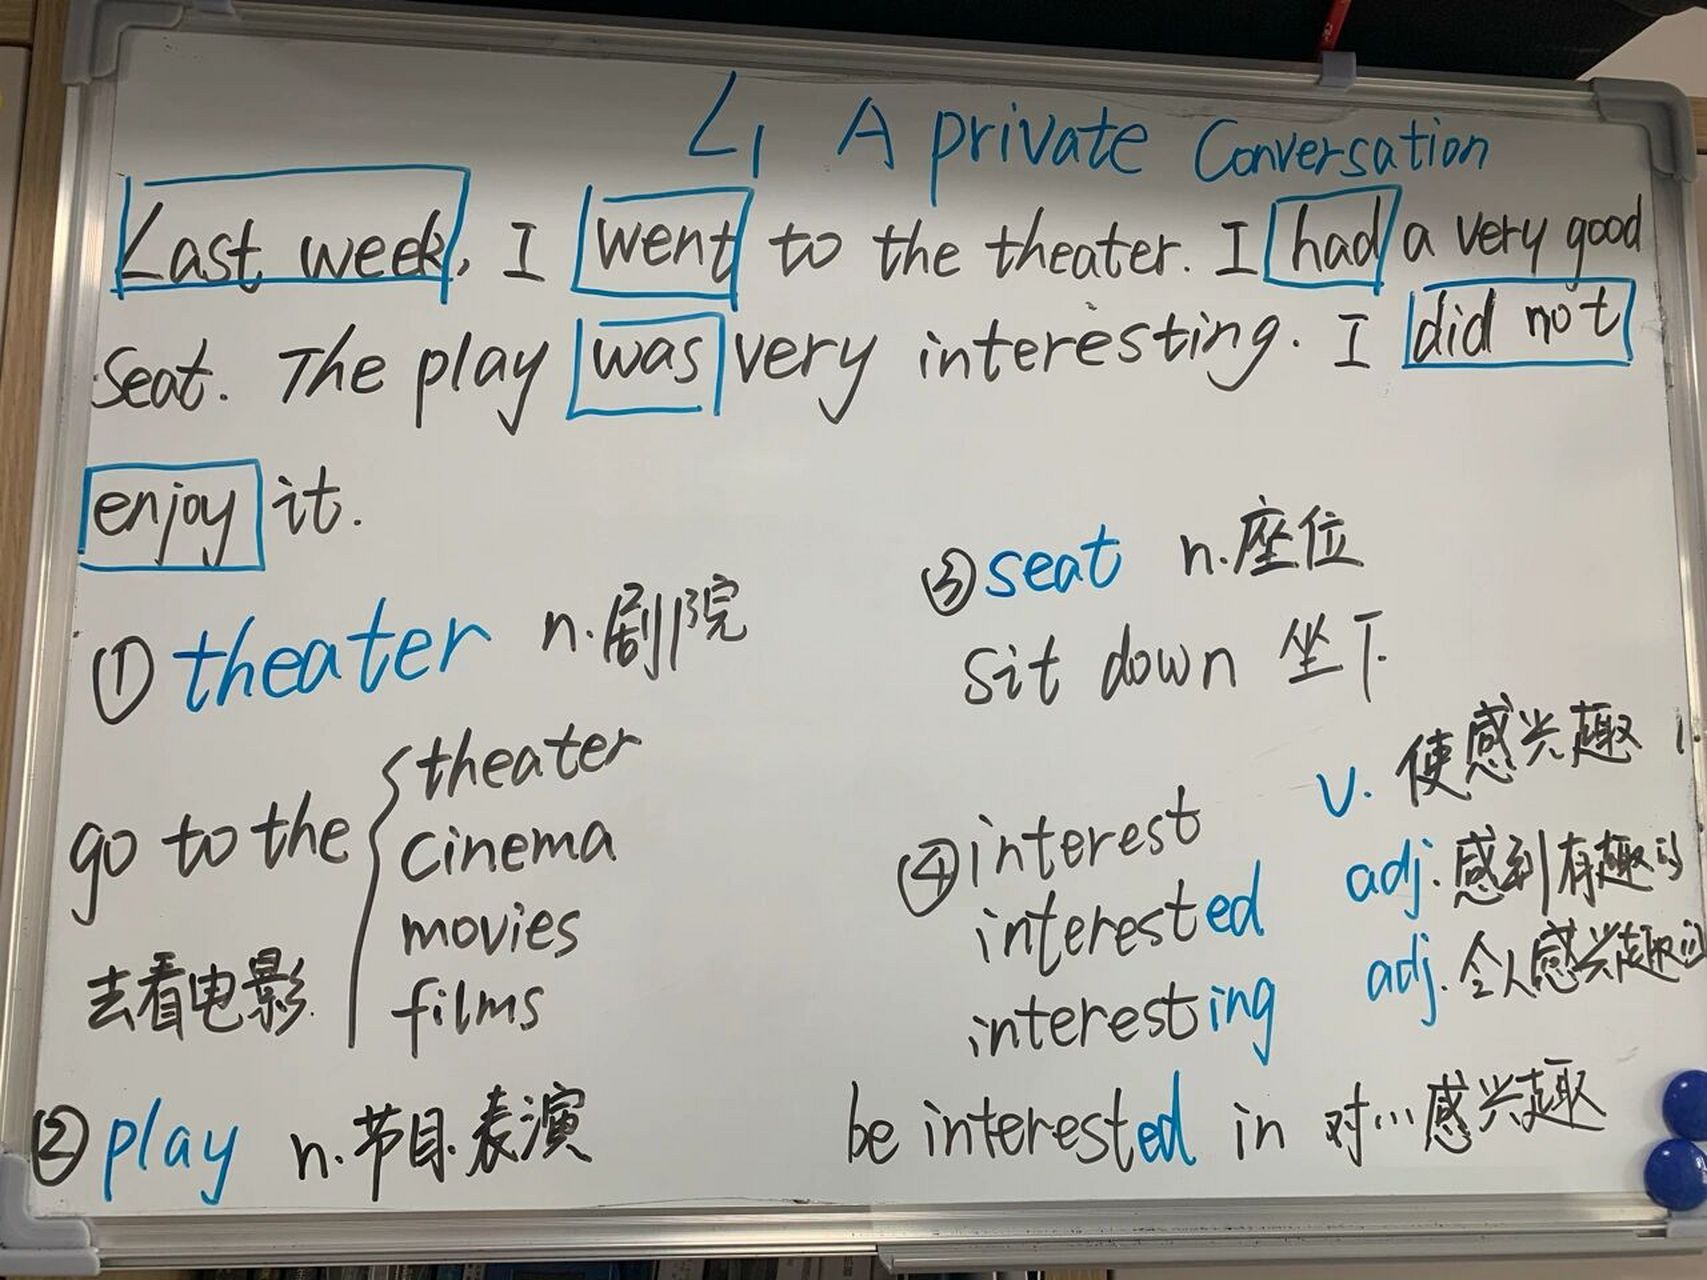 L1 A private Conversation
Last week, I went to the theater. I had a very good
seat. The play was very interesting. I did not
enjoy it.
① theater n.剧院
go to the { theater
cinema
movies
films
去看电影
② play n.节目.表演
③ seat n.座位
sit down 坐下.
④ interest v. 使感兴趣
interested adj.感到有趣的
interesting adj.令人感兴趣的
be interested in 对…感兴趣